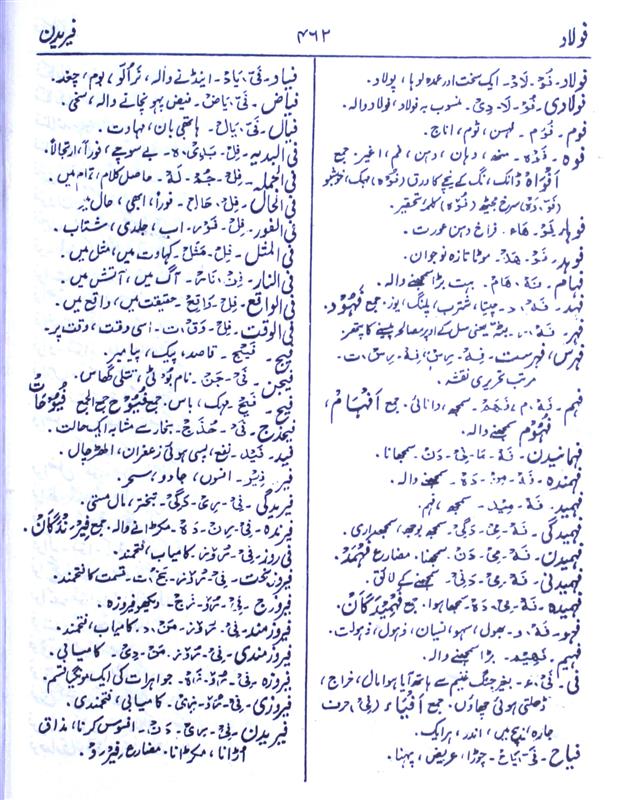 فولاد ۴۶۲ فیریدن
فولاد۔ فُوْ۔ لَادْ۔ ایک سخت اور عمدہ لوہا، پولاد۔
فولادی۔ فُوْ۔ لَا۔ دِیْ۔ منسوب بہ فولاد، فولاد والہ۔
فوم۔ فُوْم۔ لہسن، ثوم، اناج۔
فوہ۔ فُوْہ۔ منھ، دہان، دہن، فم، اغیر۔ جمع
اَفْوَاہ ڈانک، نگ کے نیچے کا ورق (فُوَّہ) مہک، خوشبو
فوہار۔ فراخ دہن عورت۔
فوہد۔ فَوْ۔ ھَدْ۔ موٹا تازہ نوجوان۔
فہام۔ فَہْ۔ ھَامْ۔ بہت بڑا سمجھنے والہ۔
فہد۔ فَہْ۔ د۔ چیتا، شترب، پلنگ، یوز۔ جمع فُہُوْد۔
فہر۔ فِہْ۔ ر۔ بٹہ یعنی سل کے اوپر مصالحہ پیسنے کا پتھر۔
فہرس، فہرست۔ فِہْ۔ رِسْ، فِہْ۔ رِسْ۔ ت۔
مرتب تحریری نقشہ۔
فہم۔ فَہْ۔ م، فَہَمْ۔ سمجھ، دانائی۔ جمع اَفْہَام،
فُہُوْم سمجھنے والہ۔
فہمانیدن۔ فَہْ۔ مَا۔ نِیْ۔ دَنْ۔ سمجھانا۔
فہمندہ۔ فَہْ۔ مَنْ۔ دَہْ۔ سمجھنے والہ۔
فہمید۔ فَہْ۔ مِیْد۔ سمجھ، فہم۔
فہمیدگی۔ فَہْ۔ مِیْ۔ دَگِیْ۔ سمجھ بوجھ، سمجھداری۔
فہمیدن۔ فَہْ۔ مِیْ۔ دَنْ۔ سمجھنا۔ مضارع فَہْمَدْ۔
فہمیدنی۔ فَہْ۔ مِیْ۔ دَنِیْ۔ سمجھنے کے لائق۔
فہمیدہ۔ فَہْ۔ مِیْ۔ دَہْ۔ سمجھا ہوا۔ جمع فَہْمِیْدَگَانْ۔
فہو۔ فَہْ۔ و۔ بھول، سہو، انسیان، ذہول، ذہولت۔
فہیم۔ فَہِیْم۔ بڑا سمجھنے والہ۔
فی۔ فَیْ۔ ء۔ بغیر جنگ غنیم سے ہاتھ آیا ہوا مال، خراج،
ڈھلتی ہوئی چھاؤں۔ جمع اَفْیَاء (فِیْ) حرف
جارہ، بیچ میں، اندر، ہر ایک۔
فیاح۔ فَیْ۔ یَاحْ۔ چوڑا، عریض، پہنا۔
فیاد۔ فَیْ۔ یَادْ۔ اینڈنے والہ، نر اُلّو، بوم، چغد۔
فیاض۔ فَیْ۔ یَاضْ۔ فیض پہونچانے والہ، سخی۔
فیال۔ فَیْ۔ یَالْ۔ ہاتھی بان، مہاوت۔
فی البدیہہ۔ بے سوچے، فوراً، ارتجالاً۔
فی الجملہ۔ فِلْ۔ جُمْ۔ لَہْ۔ حاصل کلام، تمام میں۔
فی الحال۔ فِلْ۔ حَالْ۔ فوراً، ابھی، حال میں۔
فی الفور۔ فِلْ۔ فَوْر۔ اب، جلدی، شتاب۔
فی المثل۔ فِلْ۔ مَثَلْ۔ کہاوت میں، مثل میں۔
فی النار۔ فِنْ۔ نَار۔ آگ میں، آتش میں۔
فی الواقع۔ فِلْ۔ وَاقِعْ۔ حقیقت میں، واقع میں۔
فی الوقت۔ فِلْ۔ وَقْ۔ ت۔ اسی وقت، وقت پر۔
فیج۔ فَیْج۔ قاصد، پیک، پیامبر۔
فیجن۔ فَیْ۔ جَنْ۔ نام بوٹی، تتلی گھاس۔
فیح۔ فَیْح۔ مہک، باس۔ جمع فُیُوْح جمع الجمع فُیُوْحَات
فیخدج۔ بخار سے مشابہ ایک حالت۔
فید۔ فَیْد۔ نفع، پسی ہوئی زعفران، الھڑ چال۔
فیر۔ افسوں، جادو، سحر۔
فیریدگی۔ فِیْ۔ رِیْ۔ دَگِیْ۔ تبختر، مال مستی۔
فیرندہ۔ فِیْ۔ رَنْ۔ دَہْ۔ مکڑانے والہ۔ جمع فِیْرَنْدَگَانْ۔
فیروز۔ فِیْ۔ رُوْز۔ کامیاب، فتحمند۔
فیروز بخت۔ فِیْ۔ رُوْز۔ بَخْ۔ ت۔ قسمت کا فتحمند۔
فیروزج۔ فِیْ۔ رُوْ۔ زَجْ۔ دیکھو فیروزہ۔
فیروزمند۔ فِیْ۔ رُوْز۔ مَنْ۔ د۔ کامیاب، فتحمند۔
فیروزمندی۔ فِیْ۔ رُوْز۔ مَنْ۔ دِیْ۔ کامیابی۔
فیروزہ۔ فِیْ۔ رُوْ۔ زَہْ۔ جواہرات کی ایک مونگی قسم۔
فیروزی۔ فِیْ۔ رُوْ۔ زِیْ۔ کامیابی، فتحمندی۔
فیریدن۔ فِیْ۔ رِیْ۔ دَنْ۔ افسوس کرنا، مذاق
اڑانا، مکڑانا۔ مضارع فِیْرَدْ۔